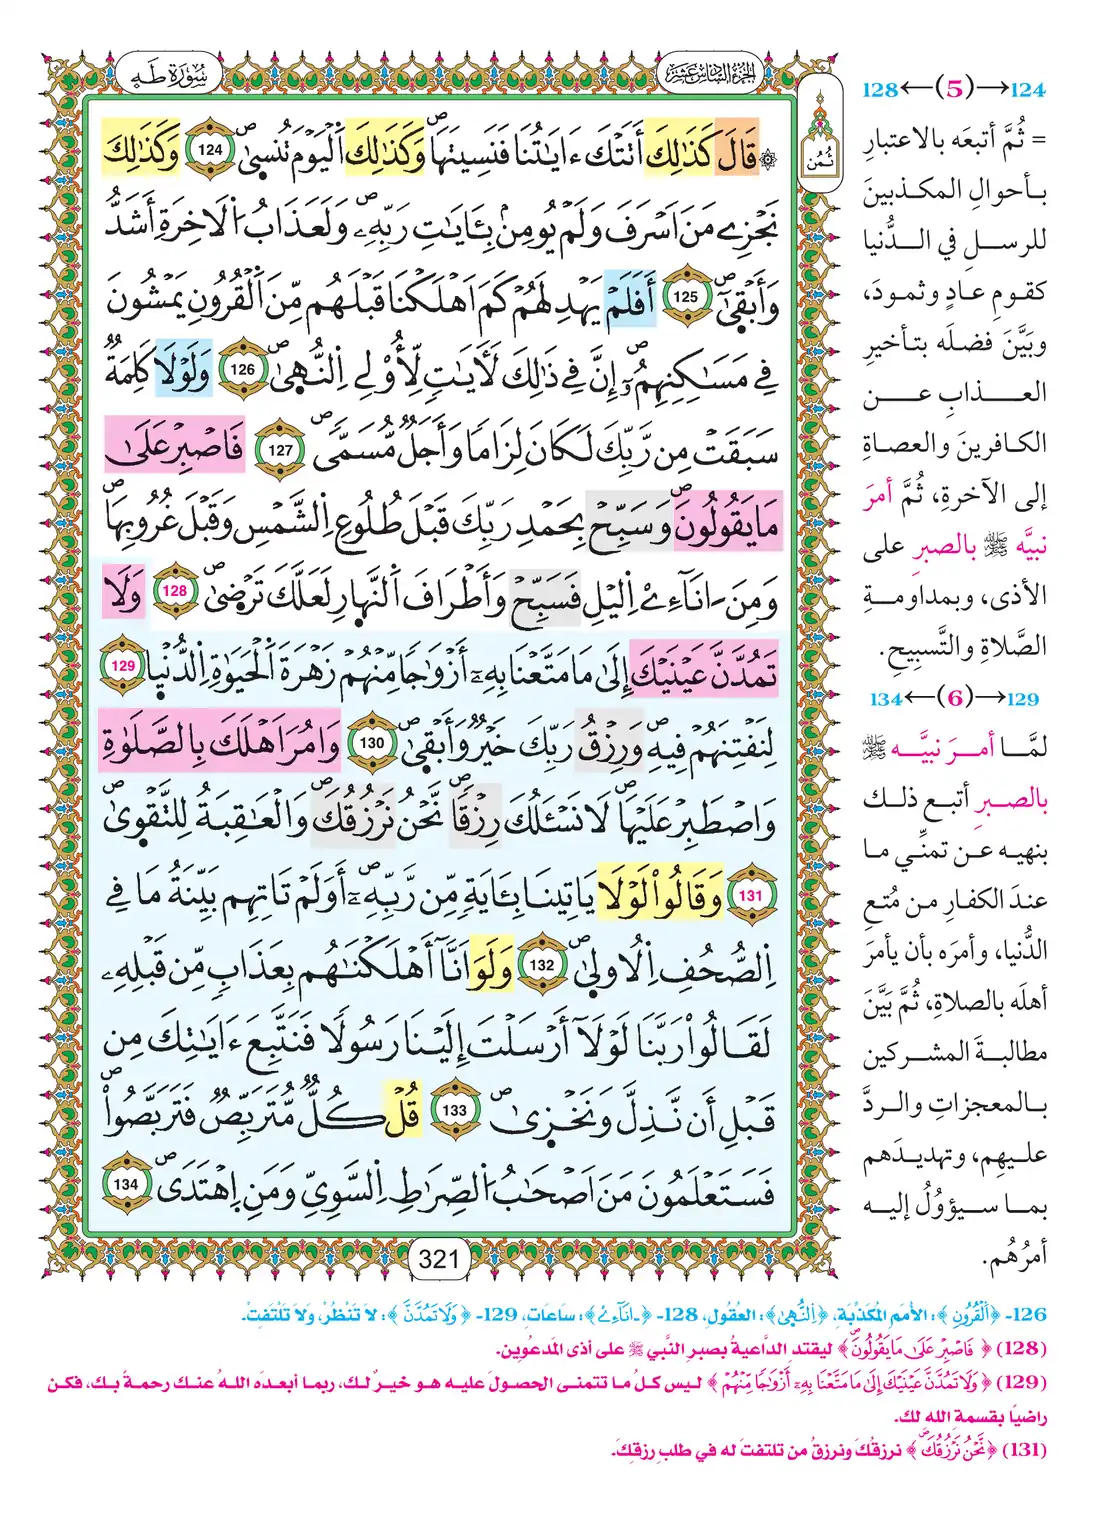 سُورَةُ طَهَ
الجزء السادس عشر
ثُمُن
۞ قَالَ كَذَٰلِكَ أَتَتْكَ ءَايَٰتُنَا فَنَسِيتَهَاۖ وَكَذَٰلِكَ اَ۬لْيَوْمَ تُنس۪يٰۖ 124 وَكَذَٰلِكَ
نَجْزِے مَنَ اَسْرَفَ وَلَمْ يُومِنۢ بِـَٔايَٰتِ رَبِّهِۦۖ وَلَعَذَابُ اُ۬لَاخِرَةِ أَشَدُّ
وَأَبْق۪يٰٓۖ 125 أَفَلَمْ يَهْدِ لَهُمْ كَمَ اَهْلَكْنَا قَبْلَهُم مِّنَ اَ۬لْقُرُونِ يَمْشُونَ
فِے مَسَٰكِنِهِمُۥٓۖ إِنَّ فِے ذَٰلِكَ لَأٓيَٰتٖ لِّأُوْلِے اِ۬لنُّه۪يٰۖ 126 وَلَوْلَا كَلِمَةٞ
سَبَقَتْ مِن رَّبِّكَ لَكَانَ لِزَاماٗ وَأَجَلٞ مُّسَمّيٗۖ 127 فَاصْبِرْ عَلَيٰ
مَا يَقُولُونَۖ وَسَبِّحْ بِحَمْدِ رَبِّكَ قَبْلَ طُلُوعِ اِ۬لشَّمْسِ وَقَبْلَ غُرُوبِهَاۖ
وَمِنَ اٰنَآءِےْ اِ۬ليْلِ فَسَبِّحْ وَأَطْرَافَ اَ۬لنَّه۪ارِ لَعَلَّكَ تَرْض۪يٰۖ 128 وَلَا
تَمُدَّنَّ عَيْنَيْكَ إِلَيٰ مَا مَتَّعْنَا بِهِۦٓ أَزْوَٰجاٗ مِّنْهُمْ زَهْرَةَ اَ۬لْحَيَوٰةِ اِ۬لدُّنْي۪ا 129
لِنَفْتِنَهُمْ فِيهِۖ وَرِزْقُ رَبِّكَ خَيْرٞ وَأَبْق۪يٰۖ 130 وَامُرَ اَهْلَكَ بِالصَّلَوٰةِ
وَاصْطَبِرْ عَلَيْهَاۖ لَا نَسْـَٔلُكَ رِزْقاٗۖ نَّحْنُ نَرْزُقُكَۖ وَالْعَٰقِبَةُ لِلتَّقْو۪يٰۖ
131 وَقَالُواْ لَوْلَا يَاتِينَا بِـَٔايَةٖ مِّن رَّبِّهِۦٓۖ أَوَلَمْ تَاتِهِم بَيِّنَةُ مَا فِے
اِ۬لصُّحُفِ اِ۬لُاول۪يٰۖ 132 وَلَوَ اَنَّآ أَهْلَكْنَٰهُم بِعَذَابٖ مِّن قَبْلِهِۦ
لَقَالُواْ رَبَّنَا لَوْلَآ أَرْسَلْتَ إِلَيْنَا رَسُولاٗ فَنَتَّبِعَ ءَايَٰتِكَ مِن
قَبْلِ أَن نَّذِلَّ وَنَخْز۪يٰۖ 133 قُلْ كُلّٞ مُّتَرَبِّصٞ فَتَرَبَّصُواْۖ
فَسَتَعْلَمُونَ مَنَ اَصْحَٰبُ اُ۬لصِّرَٰطِ اِ۬لسَّوِيِّ وَمَنِ اِ۪هْتَد۪يٰۖ 134
321
128←(5)→124
= ثُمَّ أتبعَه بالاعتبارِ
بأحوالِ المكذبينَ
للرسلِ في الدُّنيا
كقومِ عادٍ وثمودَ،
وبَيَّنَ فضلَه بتأخيرِ
العذابِ عن
الكافرينَ والعصاةِ
إلى الآخرةِ، ثُمَّ أمرَ
نبيَّه ﷺ بالصبرِ على
الأذى، وبمداومةِ
الصَّلاةِ والتَّسبِيحِ.
134←(6)→129
لمَّا أمرَ نبيَّه ﷺ
بالصبرِ أتبع ذلك
بنهيه عن تمنِّي ما
عندَ الكفارِ من مُتعِ
الدُّنيا، وأمرَه بأن يأمرَ
أهلَه بالصلاةِ، ثُمَّ بَيَّنَ
مطالبةَ المشركين
بالمعجزاتِ والردَّ
عليهِم، وتهديدَهم
بما سيؤولُ إليه
أمرُهُم.
126- ﴿اَ۬لْقُرُونِ﴾: الأمَمِ المُكَذِّبَةِ، ﴿اِ۬لنُّه۪يٰ﴾: العُقُولِ، 128- ﴿اٰنَآءِےْ﴾: سَاعَاتِ، 129- ﴿وَلَا تَمُدَّنَّ﴾: لاَ تَنْظُرْ، وَلاَ تَلْتَفِتْ.
(128) ﴿فَاصْبِرْ عَلَيٰ مَا يَقُولُونَۖ﴾ ليقتدِ الدَّاعيةُ بصبرِ النَّبي ﷺ على أذى المَدعُوِين.
(129) ﴿وَلَا تَمُدَّنَّ عَيْنَيْكَ إِلَيٰ مَا مَتَّعْنَا بِهِۦٓ أَزْوَٰجاٗ مِّنْهُمْ﴾ ليس كلُّ ما تتمنى الحصولَ عليه هو خيرٌ لك، ربما أبعدَه اللهُ عنك رحمةً بك، فكن
راضيًا بقسمةِ الله لك.
(131) ﴿نَّحْنُ نَرْزُقُكَۖ﴾ نرزقُكَ ونرزقُ من تلتفتَ له في طلبِ رزقِكَ.